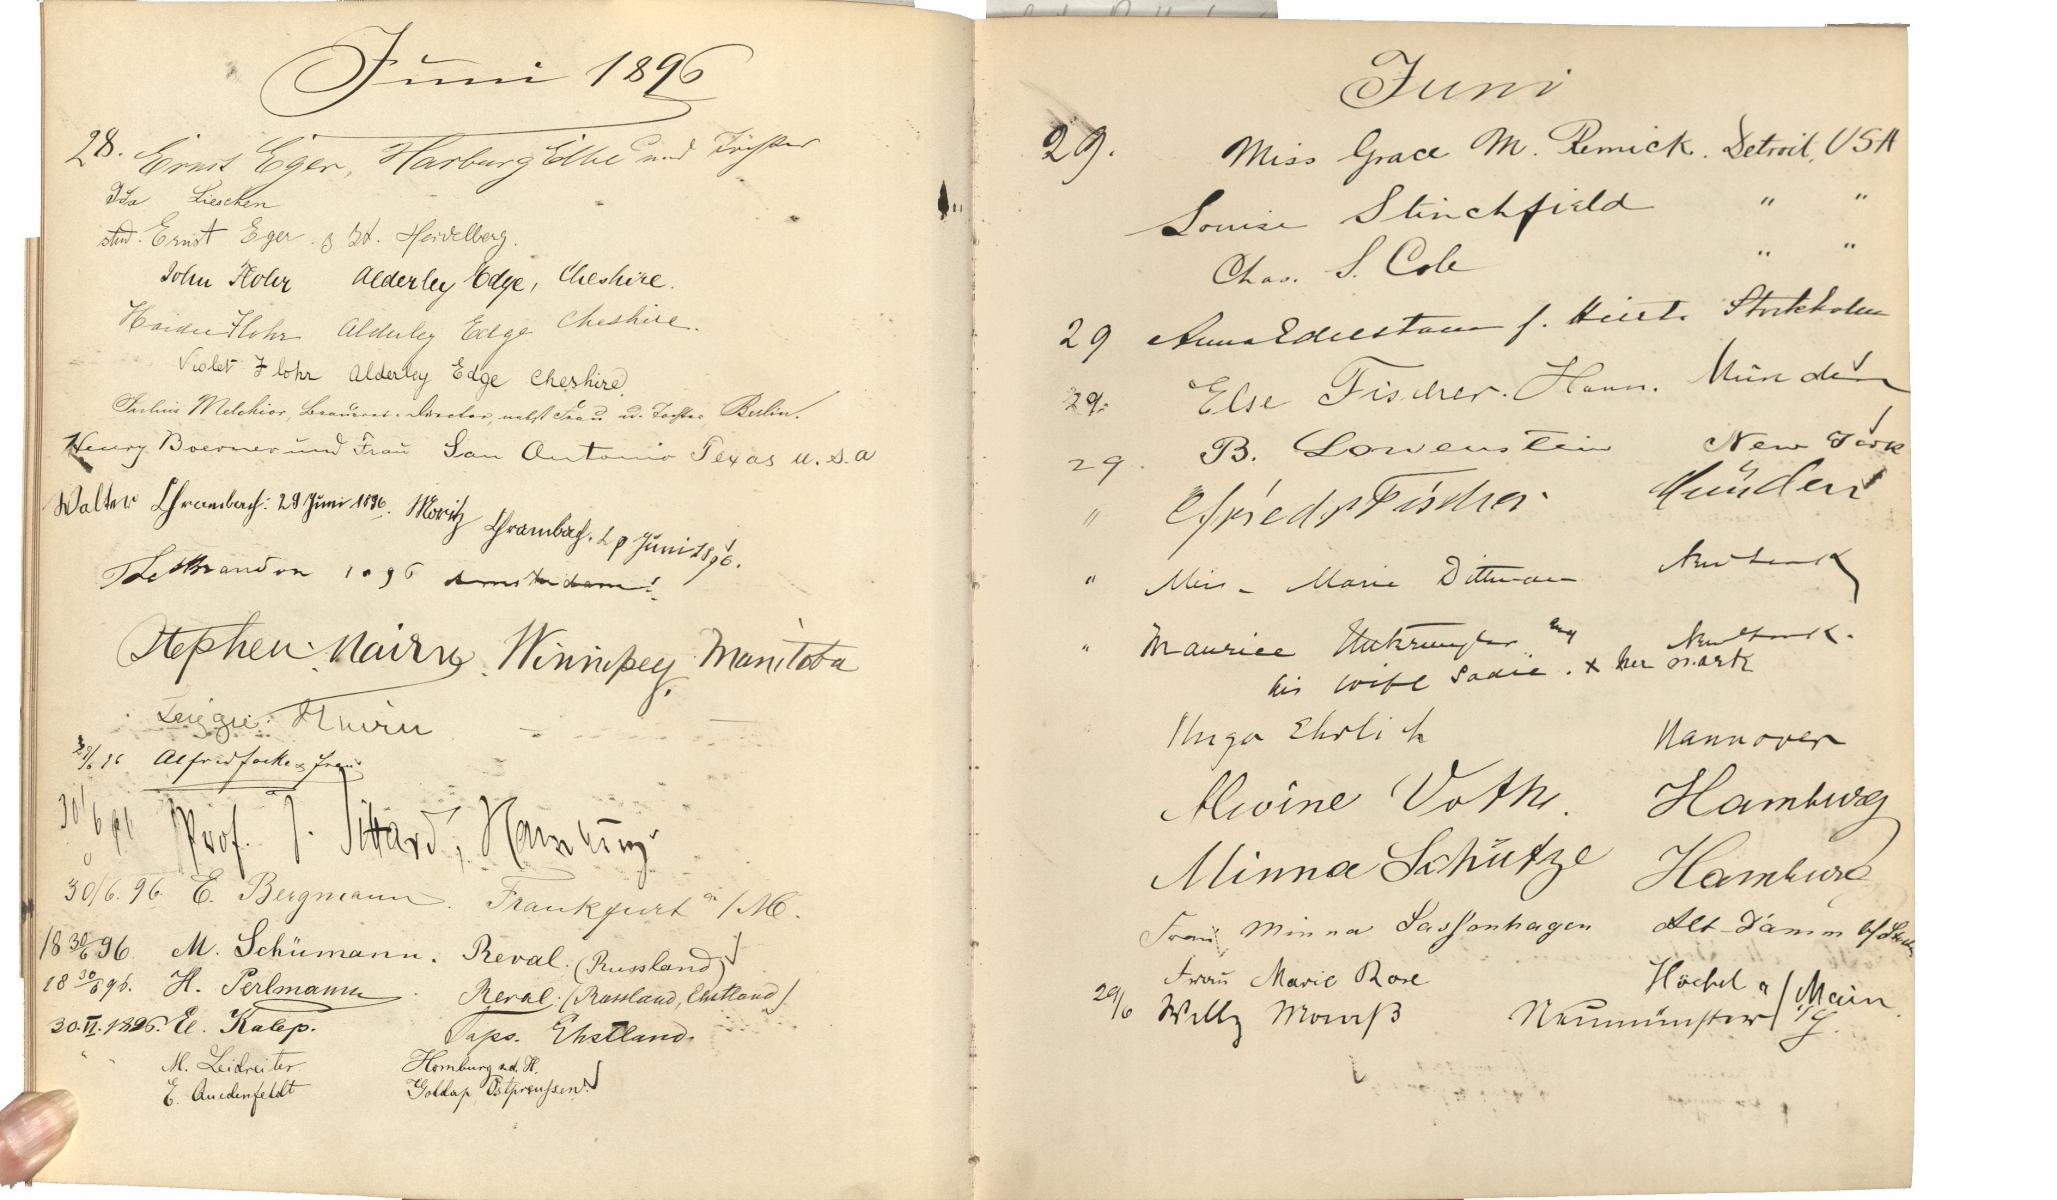 Juni 1896
28. Ernst Eger, Harburg Elbe und Töchter
Ida Lieschen
stud. Ernst Eger z Zt. Heidelberg.
John Flohr Alderley Edge, Cheshire.
Flohr Alderley Edge Cheshire.
Violet Flohr Alderley Edge Cheshire.
Julius Melchior, Brauerei-Director, nebst Frau u. Tochter Berlin.
Henry Boerner und Frau San Antonio Texas U.S.A
Walter 29 Juni 1896. Moritz 29 Juni 1896.
1896 Amsterdam!
Stephen Nairn, Winnipeg, Manitoba
Nairn
29/6 96 Alfred Focke & Frau
30/6 96 Prof. J. Sittard, Hamburg.
30/6. 96 E. Bergmann. Frankfurt a/M.
18 30/6 96 M. Schümann. Reval. (Russland)
18 30/6 96. H. Perlmann. Reval. (Russland, Ehstland).
30.VI.1896. E. Kalep. Taps. Ehstland.
" " M. Leidreiter Homburg v.d.H.
E. Quedenfeldt Goldap, Ostpreussen.
Juni
29. Miss Grace M. Remick. Detroit, USA
Louise Stinchfield " "
Chas. S. Cole " "
29 Anna Edelstam f. Stockholm
29. Else Fischer. Hann. Münden
29. B. Lowenstein New York
" Friedr Fischer. Münden
" Miss Marie Dittman New York
" Maurice Esq New York.
his wife Sadie. x her mark
Hugo Ehrlich Hannover
Alwine Voth. Hamburg
Minna Schütze Hamburg
Frau Minna Sassenhagen Alt-Damm b/
Frau Marie Rose Höchst a/Main.
29/6 Willy Neumünster